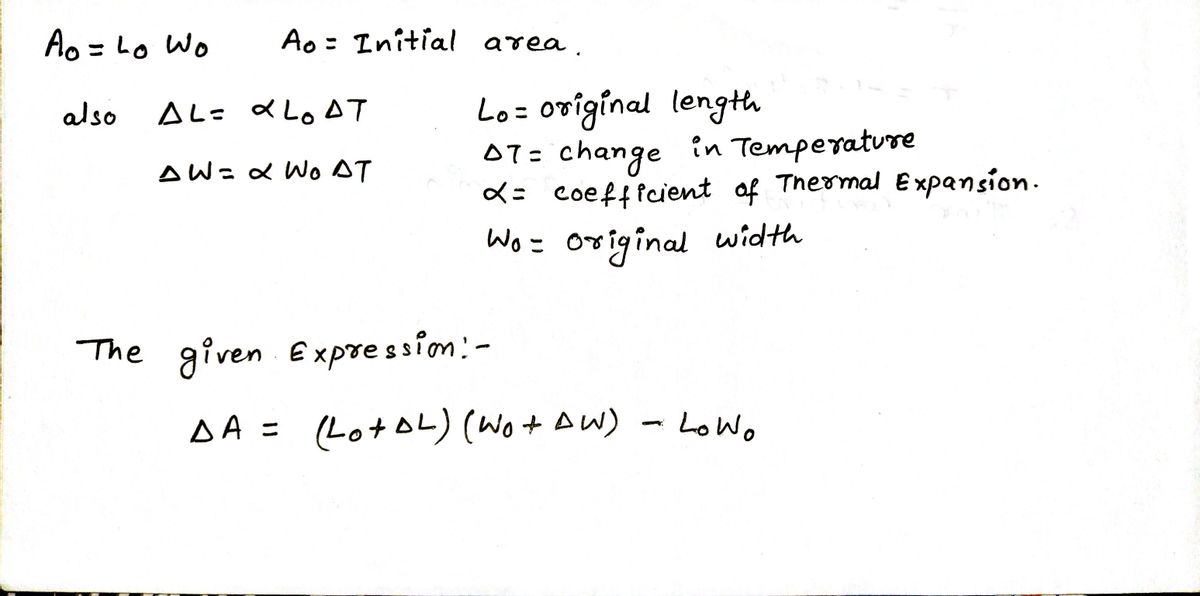 A₀ = L₀ W₀ A₀ = Initial area.
also ΔL = αL₀ΔT L₀ = original length
ΔT = change in Temperature
ΔW = α W₀ ΔT α = coefficient of Thermal Expansion.
W₀ = original width
The given Expression:-
ΔA = (L₀+ΔL) (W₀+ ΔW) - L₀W₀